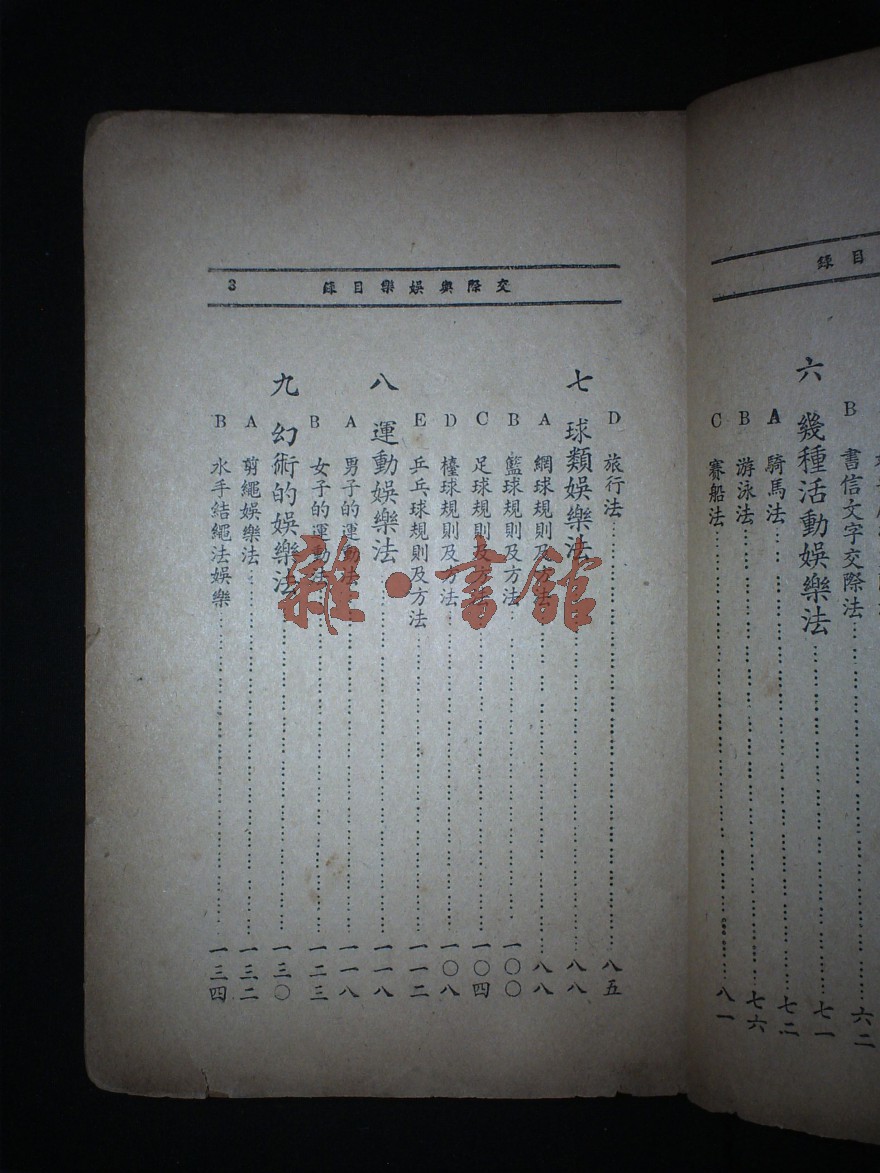 錄目
B 書信文字交際法 六二
六 幾種活動娛樂法 七一
A 騎馬法 七二
B 游泳法 七六
C 賽船法 八一
交際與娛樂目錄 3
D 旅行法 八五
七 球類娛樂法 八八
A 網球規則及方法 八八
B 籃球規則及方法 一〇〇
C 足球規則及方法 一〇四
D 檯球規則及方法 一〇八
E 乒乓球規則及方法 一一二
八 運動娛樂法 一一八
A 男子的運動法 一一八
B 女子的運動法 一二三
九 幻術的娛樂法 一三〇
A 剪繩娛樂法 一三二
B 水手結繩法娛樂 一三四
雜·書館